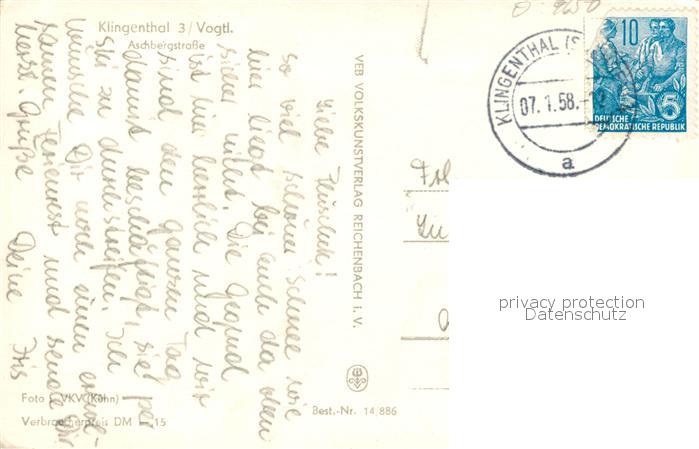 Klingenthal 3/Vogtl.
Aschbergstraße
Liebe
So viel schöner Schnee wie
hier liegt bei euch da oben
sicher nicht. Die Gegend
ist hier herrlich und wir
sind den ganzen Tag
damit beschäftigt, sie per
Ski zu durchstreifen. Ich
wünsche Dir noch einen erhol-
samen Ferienrest und sende Dir
herzl. Grüße
Deine Iris
VEB VOLKSKUNSTVERLAG REICHENBACH i. V.
Foto: VKV (Kühn)
Verbraucherpreis DM 15
Best.-Nr. 14 886
KLINGENTHAL (S
07.1.58.-1
a
10
5
DEUTSCHE
DEMOKRATISCHE REPUBLIK
privacy protection
Datenschutz